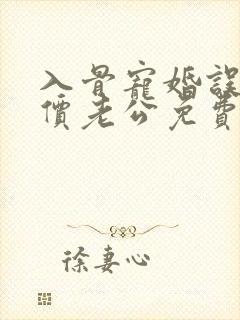 入骨寵婚誤
價老公免費
徐妻心